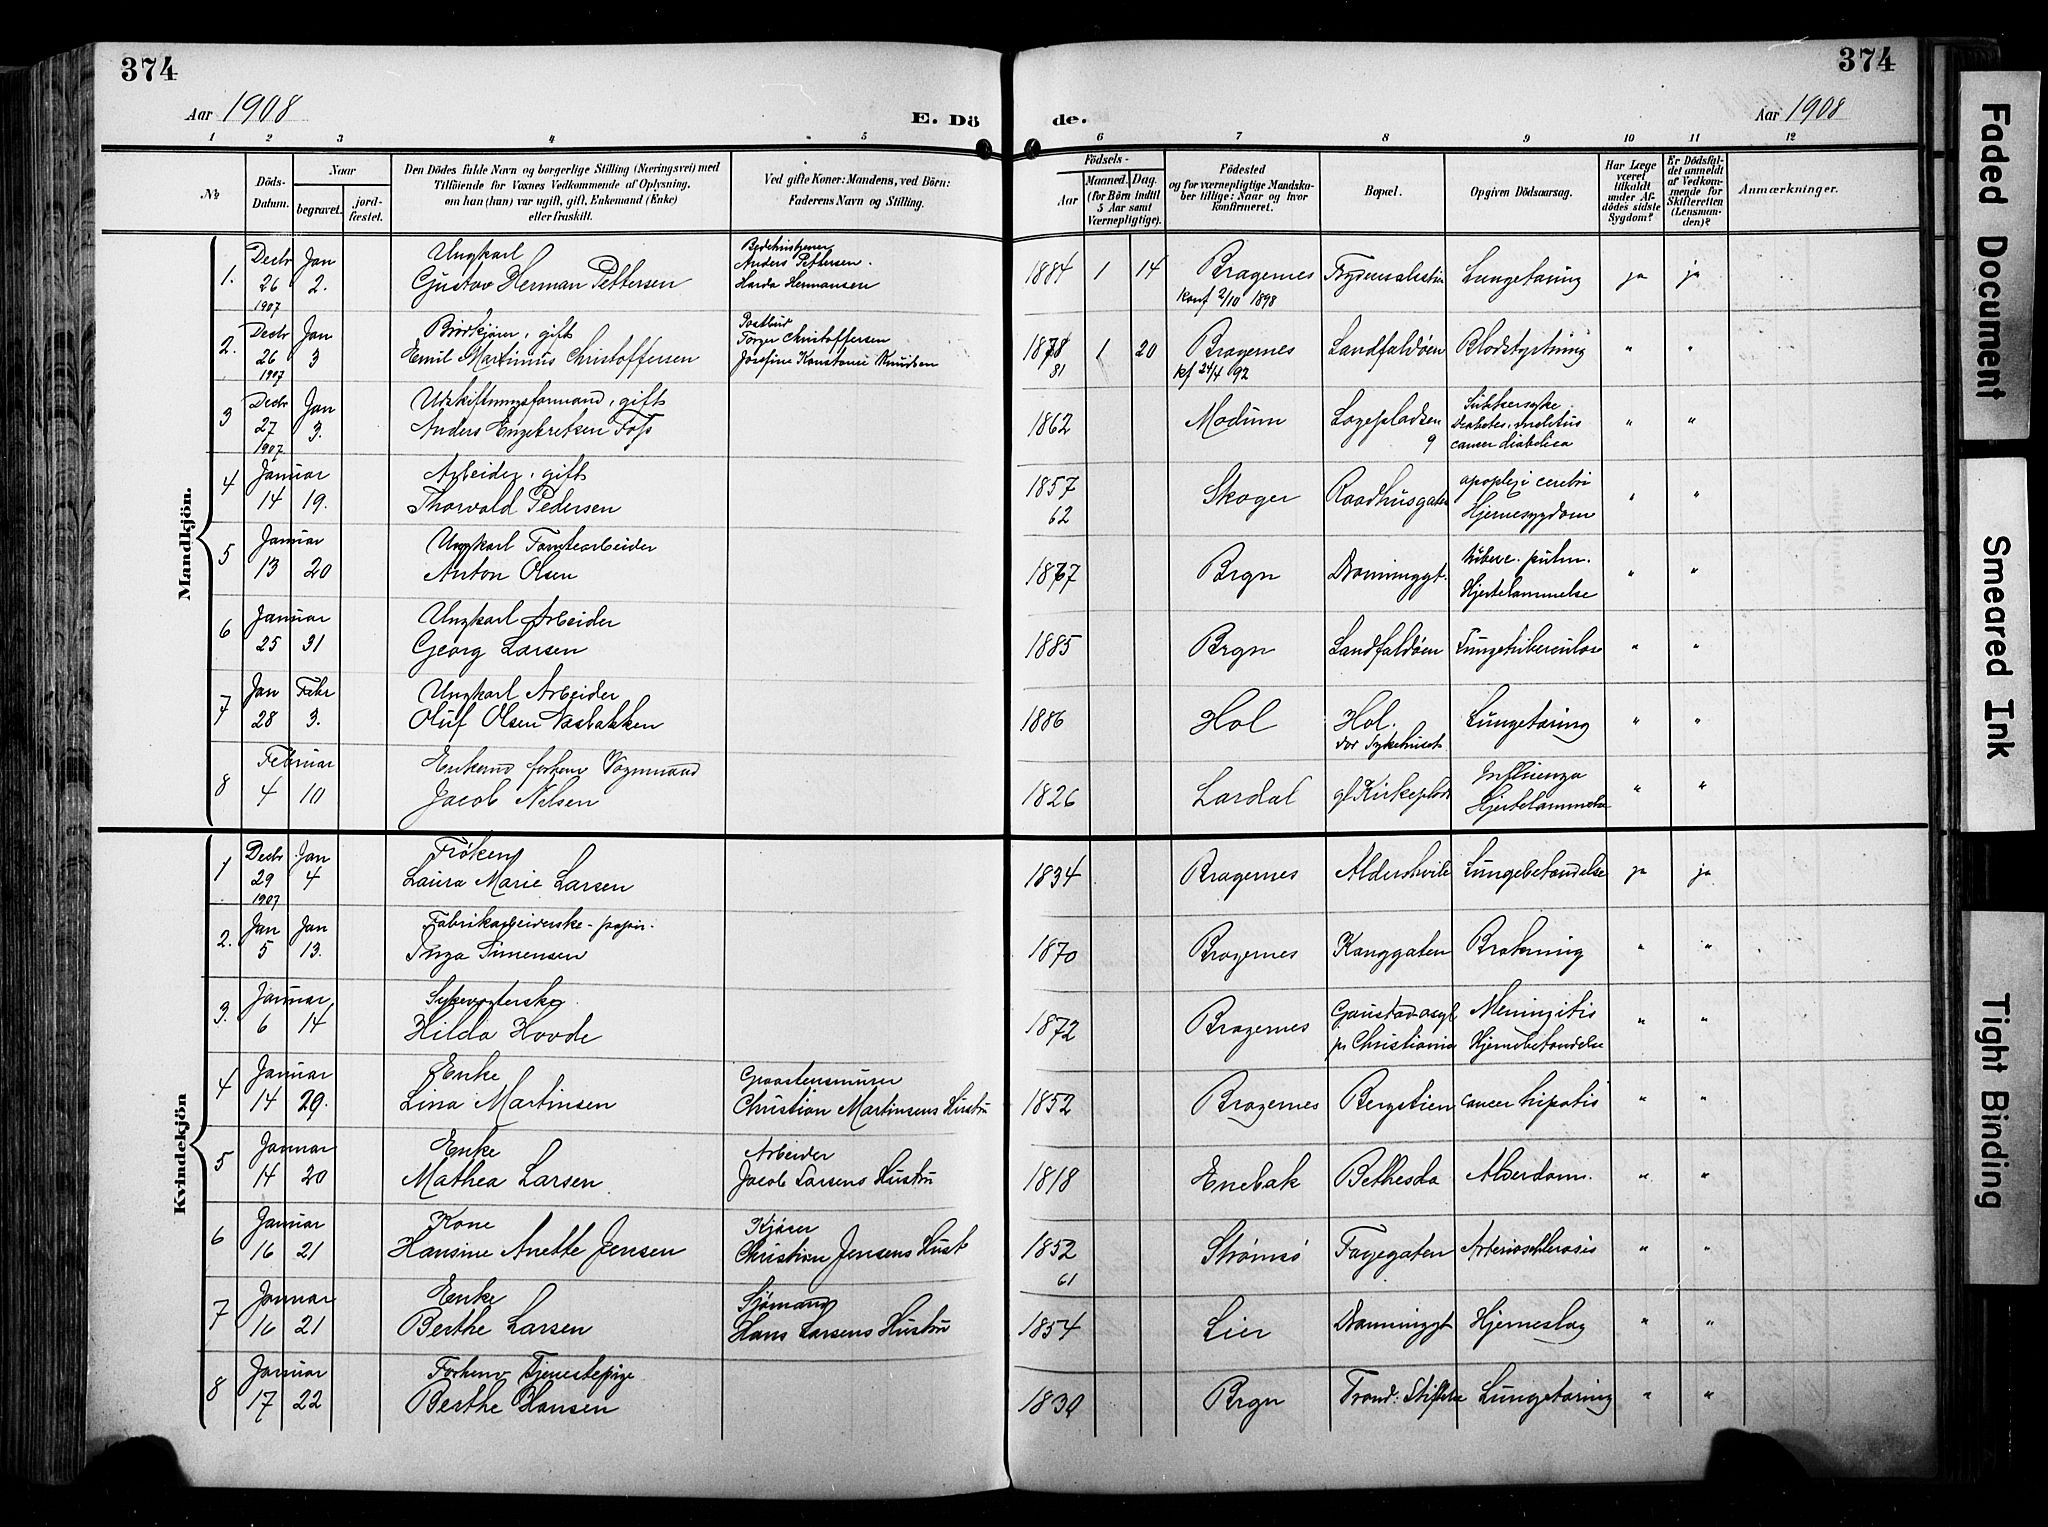 374
374
Aar 1908
E. Dö
de.
Aar 1908
1 2 3 4 5 6 7 8 9 10 11 12
No
Döds-Datum.
Naar
begravet.
jord-fæstet.
Den Dödes fulde Navn og borgerlige Stilling (Næringsvei) med
Tilföiende for Voxnes Vedkommende af Oplysning,
om han (hun) var ugift, gift, Enkemand (Enke)
eller fraskilt.
Ved gifte Koner: Mandens, ved Börn:
Faderens Navn og Stilling.
Födsels-
Aar
Maaned. Dag.
(for Börn indtil
5 Aar samt
Værnepligtige).
Födested
og for værnepligtige Mandska-
ber tillige: Naar og hvor
konfirmeret.
Bopæl.
Opgiven Dödsaarsag.
Har Læge
været
tilkaldt
under Af-
dödes sidste
Sygdom?
Er Dödsfal-
det anmeldt
af Vedkom-
mende for
Skifteretten
(Lensman-
den)?
Anmærkninger.
Mandkjön.
1. Decbr 26 1907 Jan 2. Ungkarl Gustav Herman Pettersen Anders Pettersen. Harda Hermansen 1884 1 14 Bragernes konf 2/10 1898 Lungetæring ja ja
2. Decbr 26 1907 Jan 3 Brödkjörer, gift Emil Martinius Christoffersen Postbud Torger Christoffersen Josefine Konstanse Knudsen 1878 81 1 20 Bragernes kf 24/4 92 Landfaldöen Blodstyrtning " "
3 Decbr 27 1907 Jan 3. Udskiftningsformand, gift Anders Engebretsen Foss 1862 Modum Løgepladsen 9 Sukkersyke Diabetes melitus diabetica " "
4 Januar 14 19. Arbeider, gift Thorvald Pedersen 1857 62 Skoger Raadhusgaten apoplexi cerebri Hjernesygdom " "
5 Januar 13 20 Ungkarl Tomtearbeider Anton Olsen 1867 Brgn Dronninggt. tuberc. pulm. Hjertelammelse " "
6 Januar 25 31 Ungkarl Arbeider Georg Larsen 1885 Brgn Landfaldöen Lungetuberculose " "
7 Jan 28 Febr 3. Ungkarl Arbeider Oluf Olsen Næsbakken 1886 Hol Hol. Sykehuset Lungetæring " "
8 Februar 4 10 Enkemd forhenv Vognmand Jacob Nilsen 1826 Lardal gl Kirkeplads Influenza Hjertelammelse " "
Kvindekjön
1 Decbr 29 1907 Jan 4 Fröken Laura Marie Larsen 1834 Bragernes Aldershvile Lungebetændelse ja ja
2. Jan 5 Jan 13. Fabrikarbeiderske - papir. Inga Simensen 1870 Bragernes Konggaten Brækning " "
3. Januar 6 14 Sykevogterske Hilda Hovde 1872 Bragernes Gaustad asyl pr Christiania Meningitis Hjernebetændelse " "
4 Januar 14 29. Enke Lina Martinsen Graastensmurer Christian Martinsens Hustru 1852 Bragernes Bergstien cancer hepatis " "
5 Januar 14 20 Enke Mathea Larsen Arbeider Jacob Larsens Hustru 1818 Enebak Bethesda Alderdom. " "
6 Januar 16 21 Kone Hansine Anette Jensen Kjører Christian Jensens Hust 1852 61 Strømsø Fayegaten Arteriosclerosis " "
7 Januar 16 21 Enke Berthe Larsen Sjømand Hans Larsens Hustru 1854 Lier Dronninggt Hjerneslag " "
8 Januar 17 22 Forhenv Tjenestepige Berthe Hansen 1830 Brgn Trond. Stiftelse Lungetæring " "
Faded Document
Smeared Ink
Tight Binding